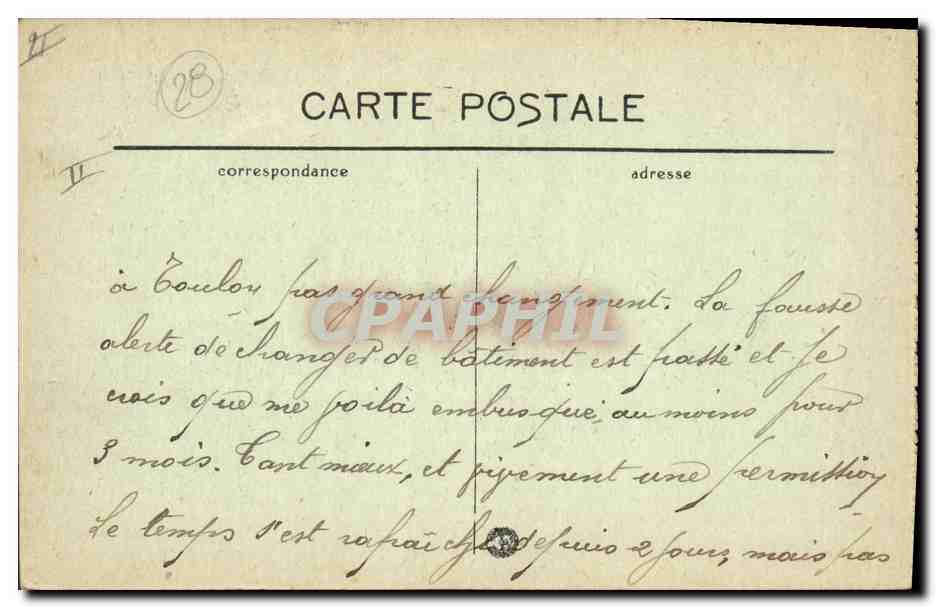 II
28
CARTE POSTALE
II
correspondance
adresse
à Toulon pas grand changement. La fausse
alerte de changer de bâtiment est passé et Je
crois que me voilà embusqué au moins pour
3 mois. Tant mieux, et vivement une permission
Le temps s'est rafraîchi depuis 2 jours, mais pas
CPAPHIL